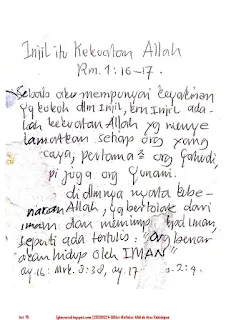 Injil itu Kekuatan Allah
Rm. 1:16-17.
Sebab aku mempunyai keyakinan
yg kokoh dlm Injil, krn Injil ada-
lah kekuatan Allah yg menye
lamatkan setiap org yang
caya, pertama² org Yahudi,
tpi juga org Yunani.
di dlmnya nyata kebe-
naran Allah, yg bertolak dari
iman dan memimp kpd iman,
seperti ada tertulis: "org benar
akan hidup oleh IMAN"
ay.16: Mrk. 8:38, ay.17 2:4.